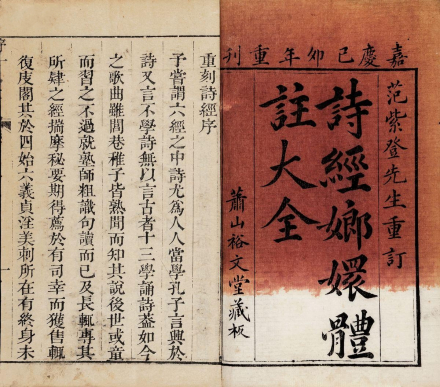 嘉慶己卯年重刊
范紫登先生重訂
詩經嫏嬛體
註大全
蕭山裕文堂藏板
重刻詩經序
予嘗謂六經之中詩尤為人人當學孔子言興於
詩又言不學詩無以言古者十三學誦詩蓋如今
之歌曲雖閭巷稚子皆熟聞而知其說後世或童
而習之不過就塾師粗識句讀而已及長輒專其
所肄之經揣摩秘要期得薦於有司幸而獲售輒
復庋閣其於四始六義貞淫美刺所在有終身未